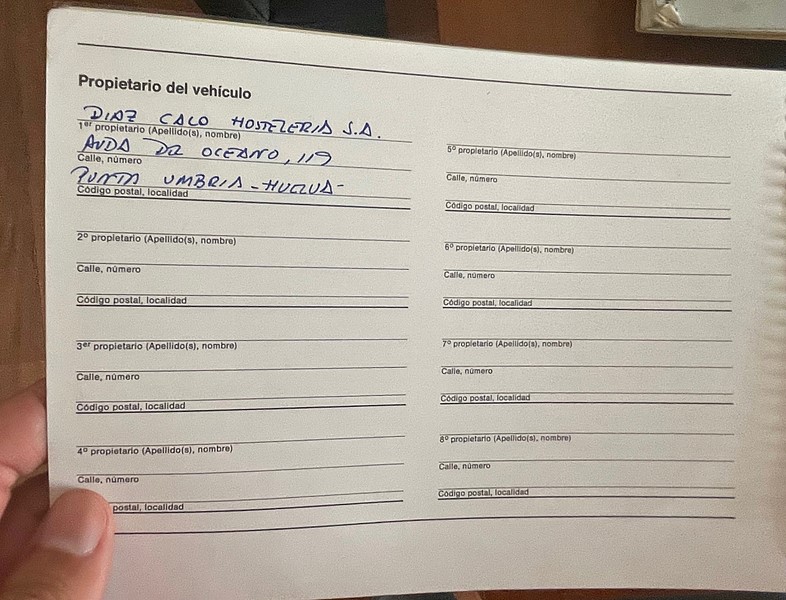 Propietario del vehículo
DIAZ CALO HOSTELERIA S.A.
1er propietario (Apellido(s), nombre)
AVDA DR OCEANO, 119
Calle, número
PUNTA UMBRIA - HUELVA -
Código postal, localidad
2º propietario (Apellido(s), nombre)
Calle, número
Código postal, localidad
3er propietario (Apellido(s), nombre)
Calle, número
Código postal, localidad
4º propietario (Apellido(s), nombre)
Calle, número
postal, localidad
5º propietario (Apellido(s), nombre)
Calle, número
Código postal, localidad
6º propietario (Apellido(s), nombre)
Calle, número
Código postal, localidad
7º propietario (Apellido(s), nombre)
Calle, número
Código postal, localidad
8º propietario (Apellido(s), nombre)
Calle, número
Código postal, localidad